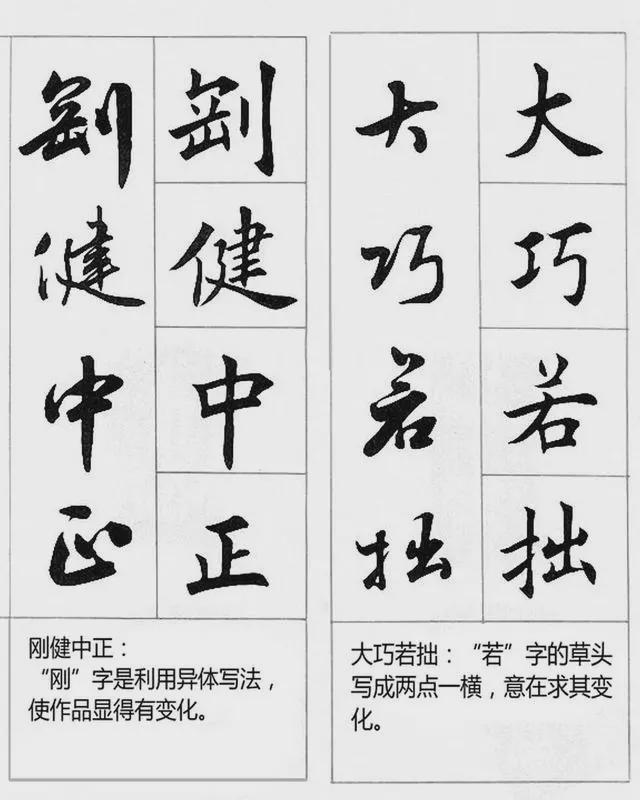 大巧若拙
大巧若拙
大巧若拙：“若”字的草头
写成两点一横，意在求其变
化。
剛健中正
剛健中正
刚健中正：
“刚”字是利用异体写法，
使作品显得有变化。